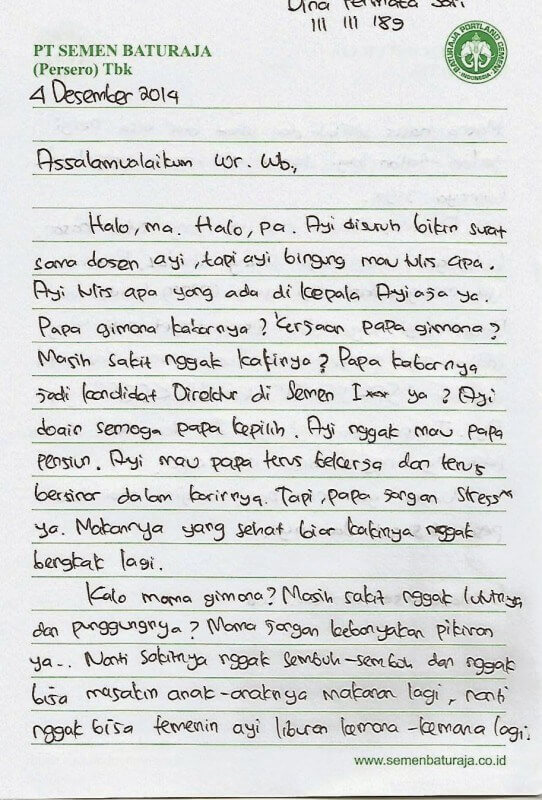 Dina Permata Sari
111 111 189
PT SEMEN BATURAJA
(Persero) Tbk
BATURAJA PORTLAND CEMENT
INDONESIA
4 Desember 2014
Assalamualaikum Wr. Wb,
Halo, ma. Halo, pa. Ayi disuruh bikin surat
sama dosen ayi, tapi ayi bingung mau tulis apa.
Ayi tulis apa yang ada di kepala Ayi aja ya.
Papa gimana kabarnya? Kerjaan papa gimana?
Masih sakit nggak kakinya? Papa kabarnya
jadi kandidat Direktur di Semen I*** ya? Ayi
doain semoga papa kepilih. Ayi nggak mau papa
pensiun. Ayi mau papa terus bekerja dan terus
bersinar dalam karirnya. Tapi, papa jangan stress"
ya. Makannya yang sehat biar kakinya nggak
bengkak lagi.
Kalo mama gimana? Masih sakit nggak lututnya
dan punggungnya? Mama jangan kebanyakan pikiran
ya... Nanti sakitnya nggak sembuh-sembuh dan nggak
bisa masakin anak-anaknya makanan lagi, nanti
nggak bisa temenin ayi liburan kemana-kemana lagi.
www.semenbaturaja.co.id